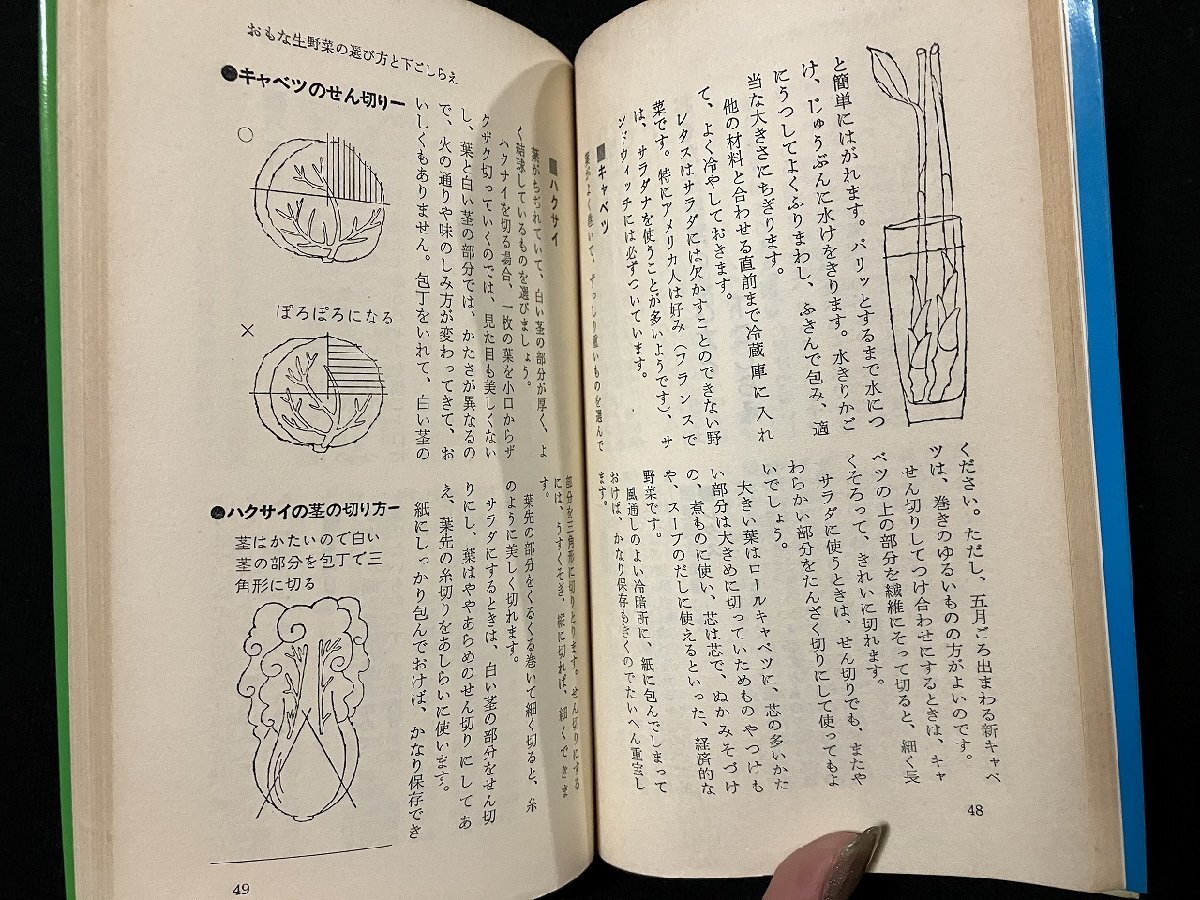 と簡単にはがれます。パリッとするまで水につ
け、じゅうぶんに水けをきります。水きりかご
にうつしてよくふりまわし、ふきんで包み、適
当な大きさにちぎります。
他の材料と合わせる直前まで冷蔵庫に入れ
て、よく冷やしておきます。
レタスはサラダには欠かすことのできない野
菜です。特にアメリカ人は好み（フランスで
は、サラダナを使うことが多いようです）、サ
ンドウィッチには必ずついています。
■キャベツ
葉がよく巻いて、ずっしり重いものを選んで
ください。ただし、五月ごろ出まわる新キャベ
ツは、巻きのゆるいものの方がよいのです。
せん切りしてつけ合わせにするときは、キャ
ベツの上の部分を繊維にそって切ると、細く長
くそろって、きれいに切れます。
サラダに使うときは、せん切りでも、またや
わらかい部分をたんざく切りにして使ってもよ
いでしょう。
大きい葉はロールキャベツに、芯の多いかた
い部分は大きめに切っていためものやつけも
の、煮ものに使い、芯は芯で、ぬかみそづけ
や、スープのだしに使えるといった、経済的な
野菜です。
風通しのよい冷暗所に、紙に包んでしまって
おけば、かなり保存もきくのでたいへん重宝し
ます。
48
おもな生野菜の選び方と下ごしらえ
●キャベツのせん切りー
○
ぼろぼろになる
×
■ハクサイ
葉がちぢれていて、白い茎の部分が厚く、よ
く結球しているものを選びましょう。
ハクサイを切る場合、一枚の葉を小口からザ
クザク切っていくのでは、見た目も美しくない
し、葉と白い茎の部分では、かたさが異なるの
で、火の通りや味のしみ方が変わってきて、お
いしくもありません。包丁をいれて、白い茎の
部分を三角形に切りとります。せん切りにする
には、うすくそぎ、縦に切れば、細くできま
す。
葉先の部分をくるくる巻いて細く切ると、糸
のように美しく切れます。
サラダにするときは、白い茎の部分をせん切
りにし、葉はややあらめのせん切りにしてあ
え、葉先の糸切りをあしらいに使います。
紙にしっかり包んでおけば、かなり保存でき
●ハクサイの茎の切り方ー
茎はかたいので白い
茎の部分を包丁で三
角形に切る
49